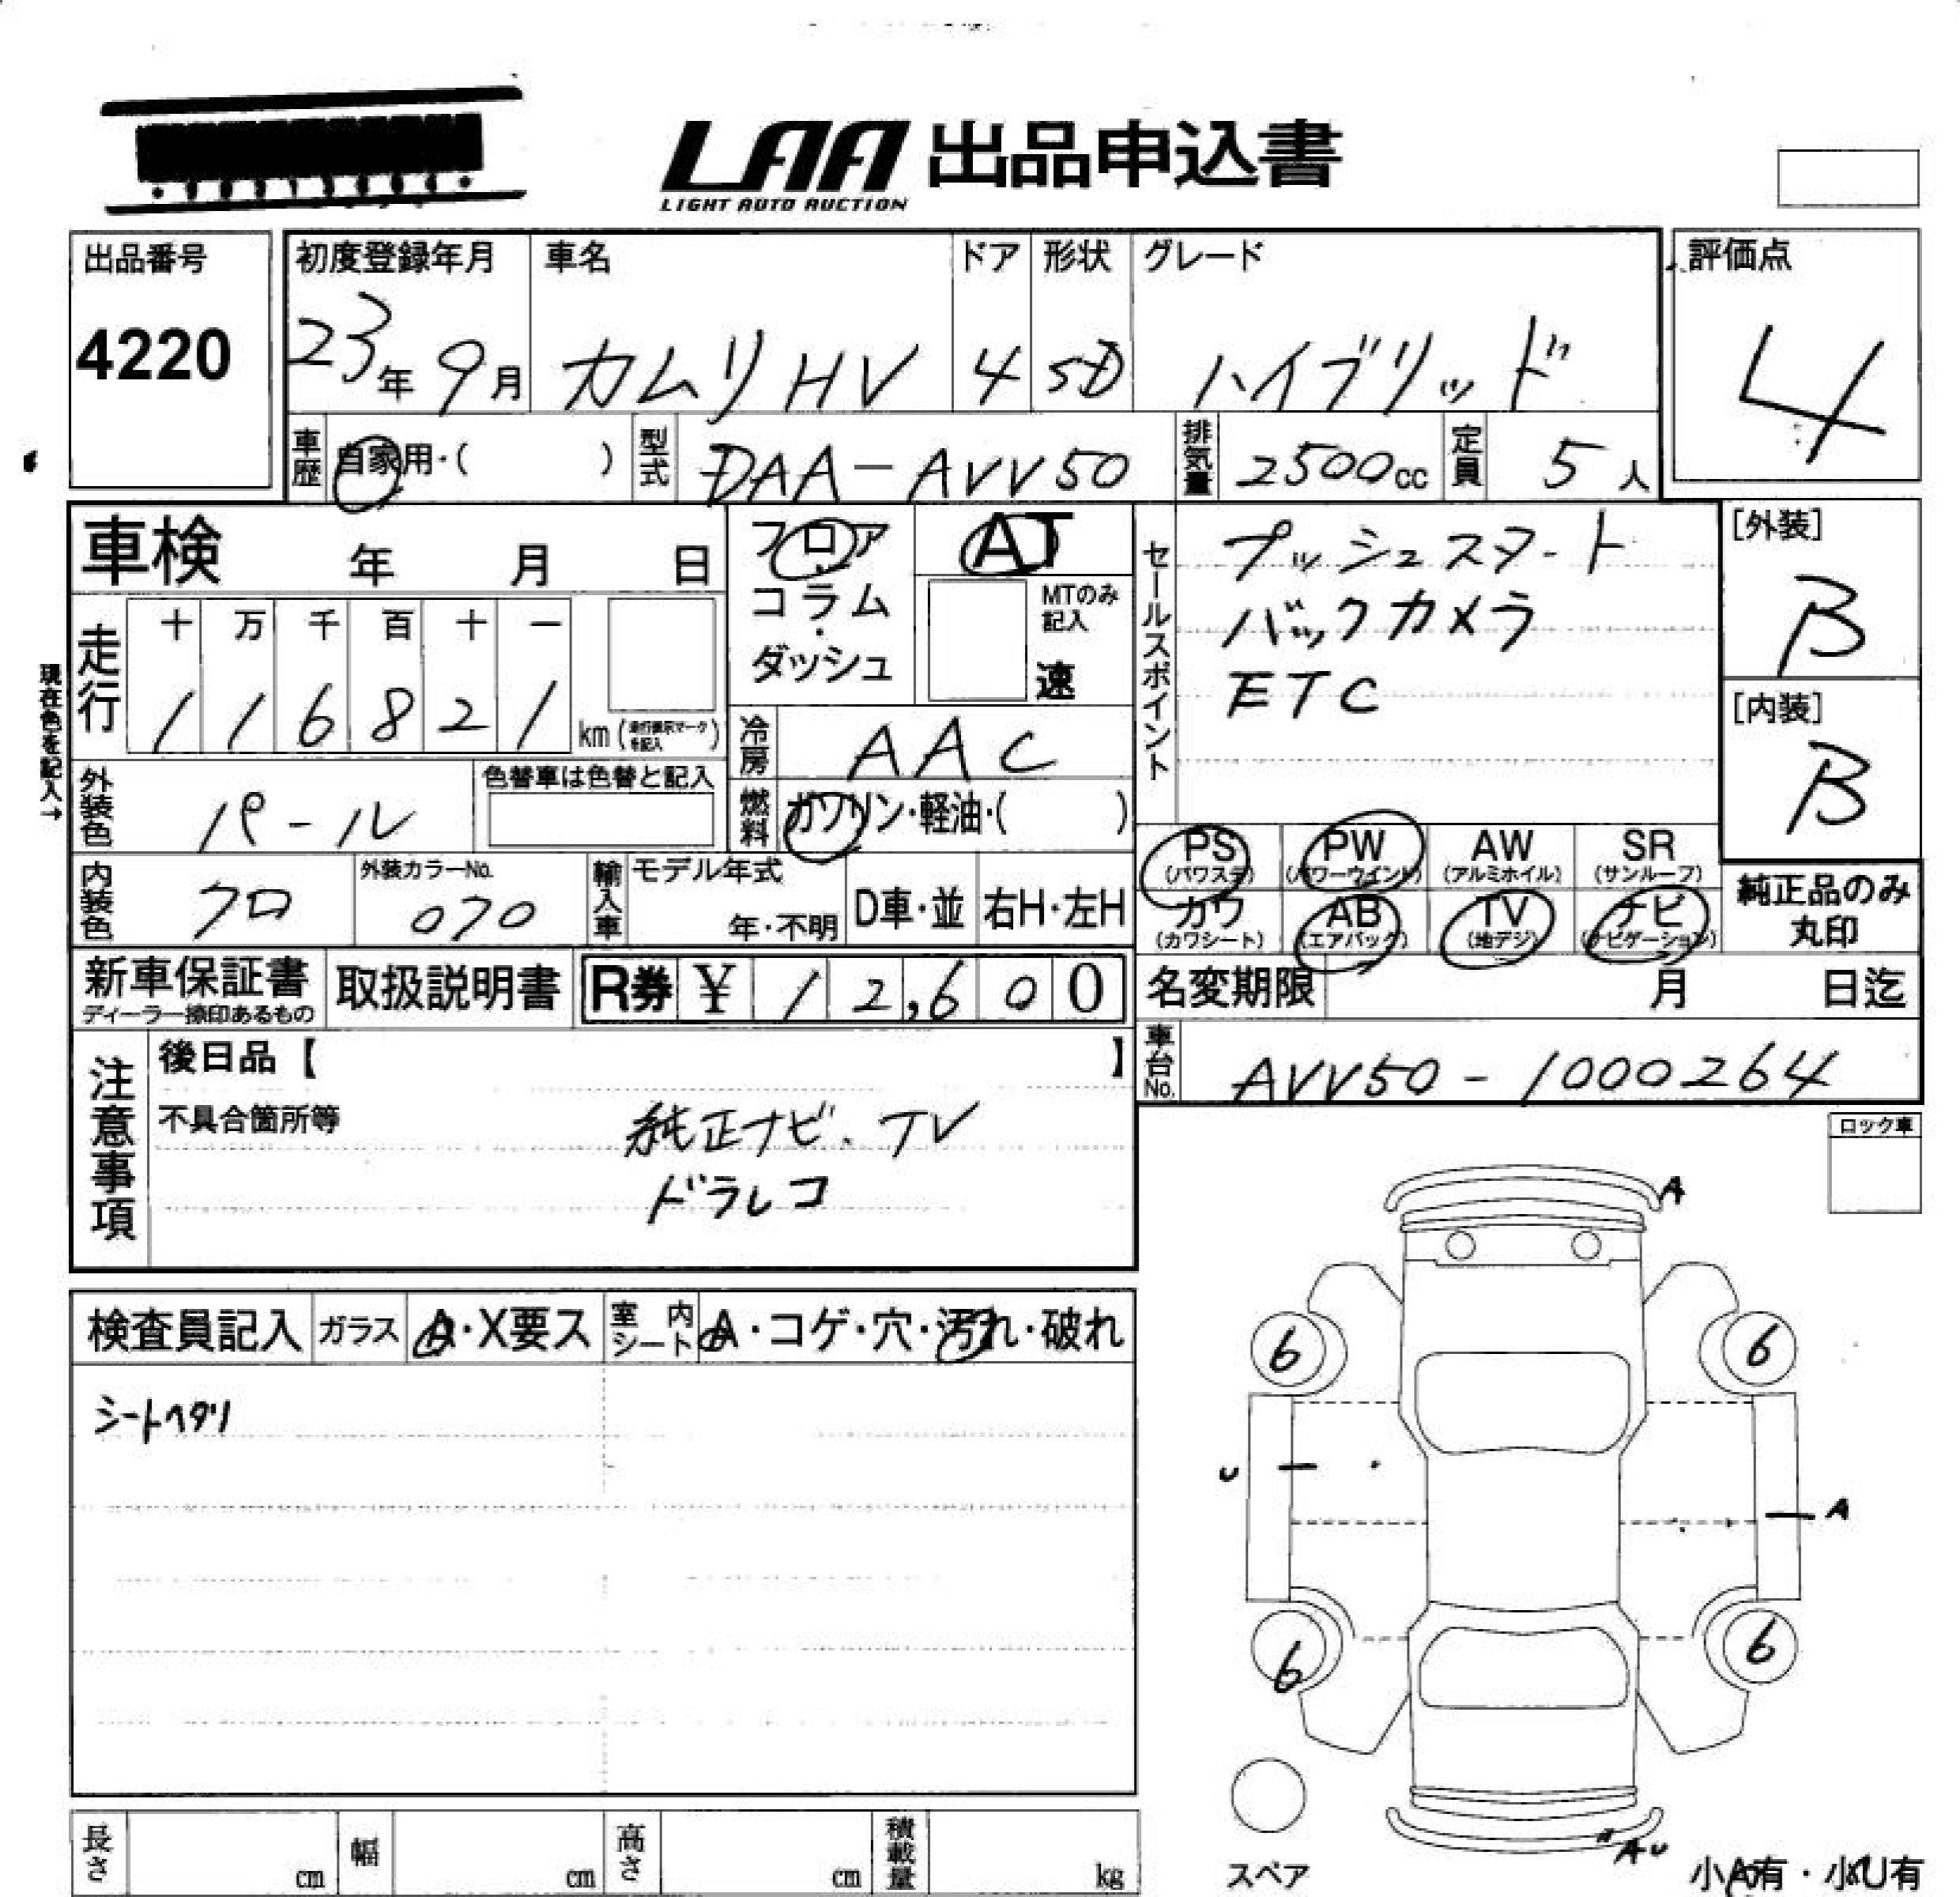 LAA 出品申込書
LIGHT AUTO AUCTION
出品番号
4220
初度登録年月
23年9月
車名
カムリHV
ドア
4
形状
SD
グレード
ハイブリッド
評価点
4
車歴
自家用・( )
型式
DAA-AVV50
排気量
2500cc
定員
5人
車検 年 月 日
フロア
コラム
・
ダッシュ
AT
MTのみ
記入
速
セールスポイント
プッシュスタート
バックカメラ
ETC
[外装]
B
[内装]
B
現在色を記入→
走行
十 万 千 百 十 一
1 1 6 8 2 1
km(走行表示マークを記入)
冷房
AAC
外装色
パール
色替車は色替と記入
燃料
ガソリン・軽油・( )
PS
(パワステ)
PW
(パワーウインド)
AW
(アルミホイル)
SR
(サンルーフ)
カワ
(カワシート)
AB
(エアバック)
TV
(地デジ)
ナビ
(ナビゲーション)
純正品のみ
丸印
内装色
クロ
外装カラーNo.
070
輸入車
モデル年式
年・不明
D車・並
右H・左H
新車保証書
ディーラー捺印あるもの
取扱説明書
R券 ¥ 12,600
名変期限 月 日迄
車台No.
AVV50-1000264
注意事項
後日品【 】
不具合箇所等
純正ナビ、TV
ドラレコ
ロック車
検査員記入
ガラス
A・X要ス
室内シート
A・コゲ・穴・汚れ・破れ
シートヘタリ
A
6
6
U
A
6
6
AU
スペア
小A有・小U有
長さ cm
幅 cm
高さ cm
積載量 kg